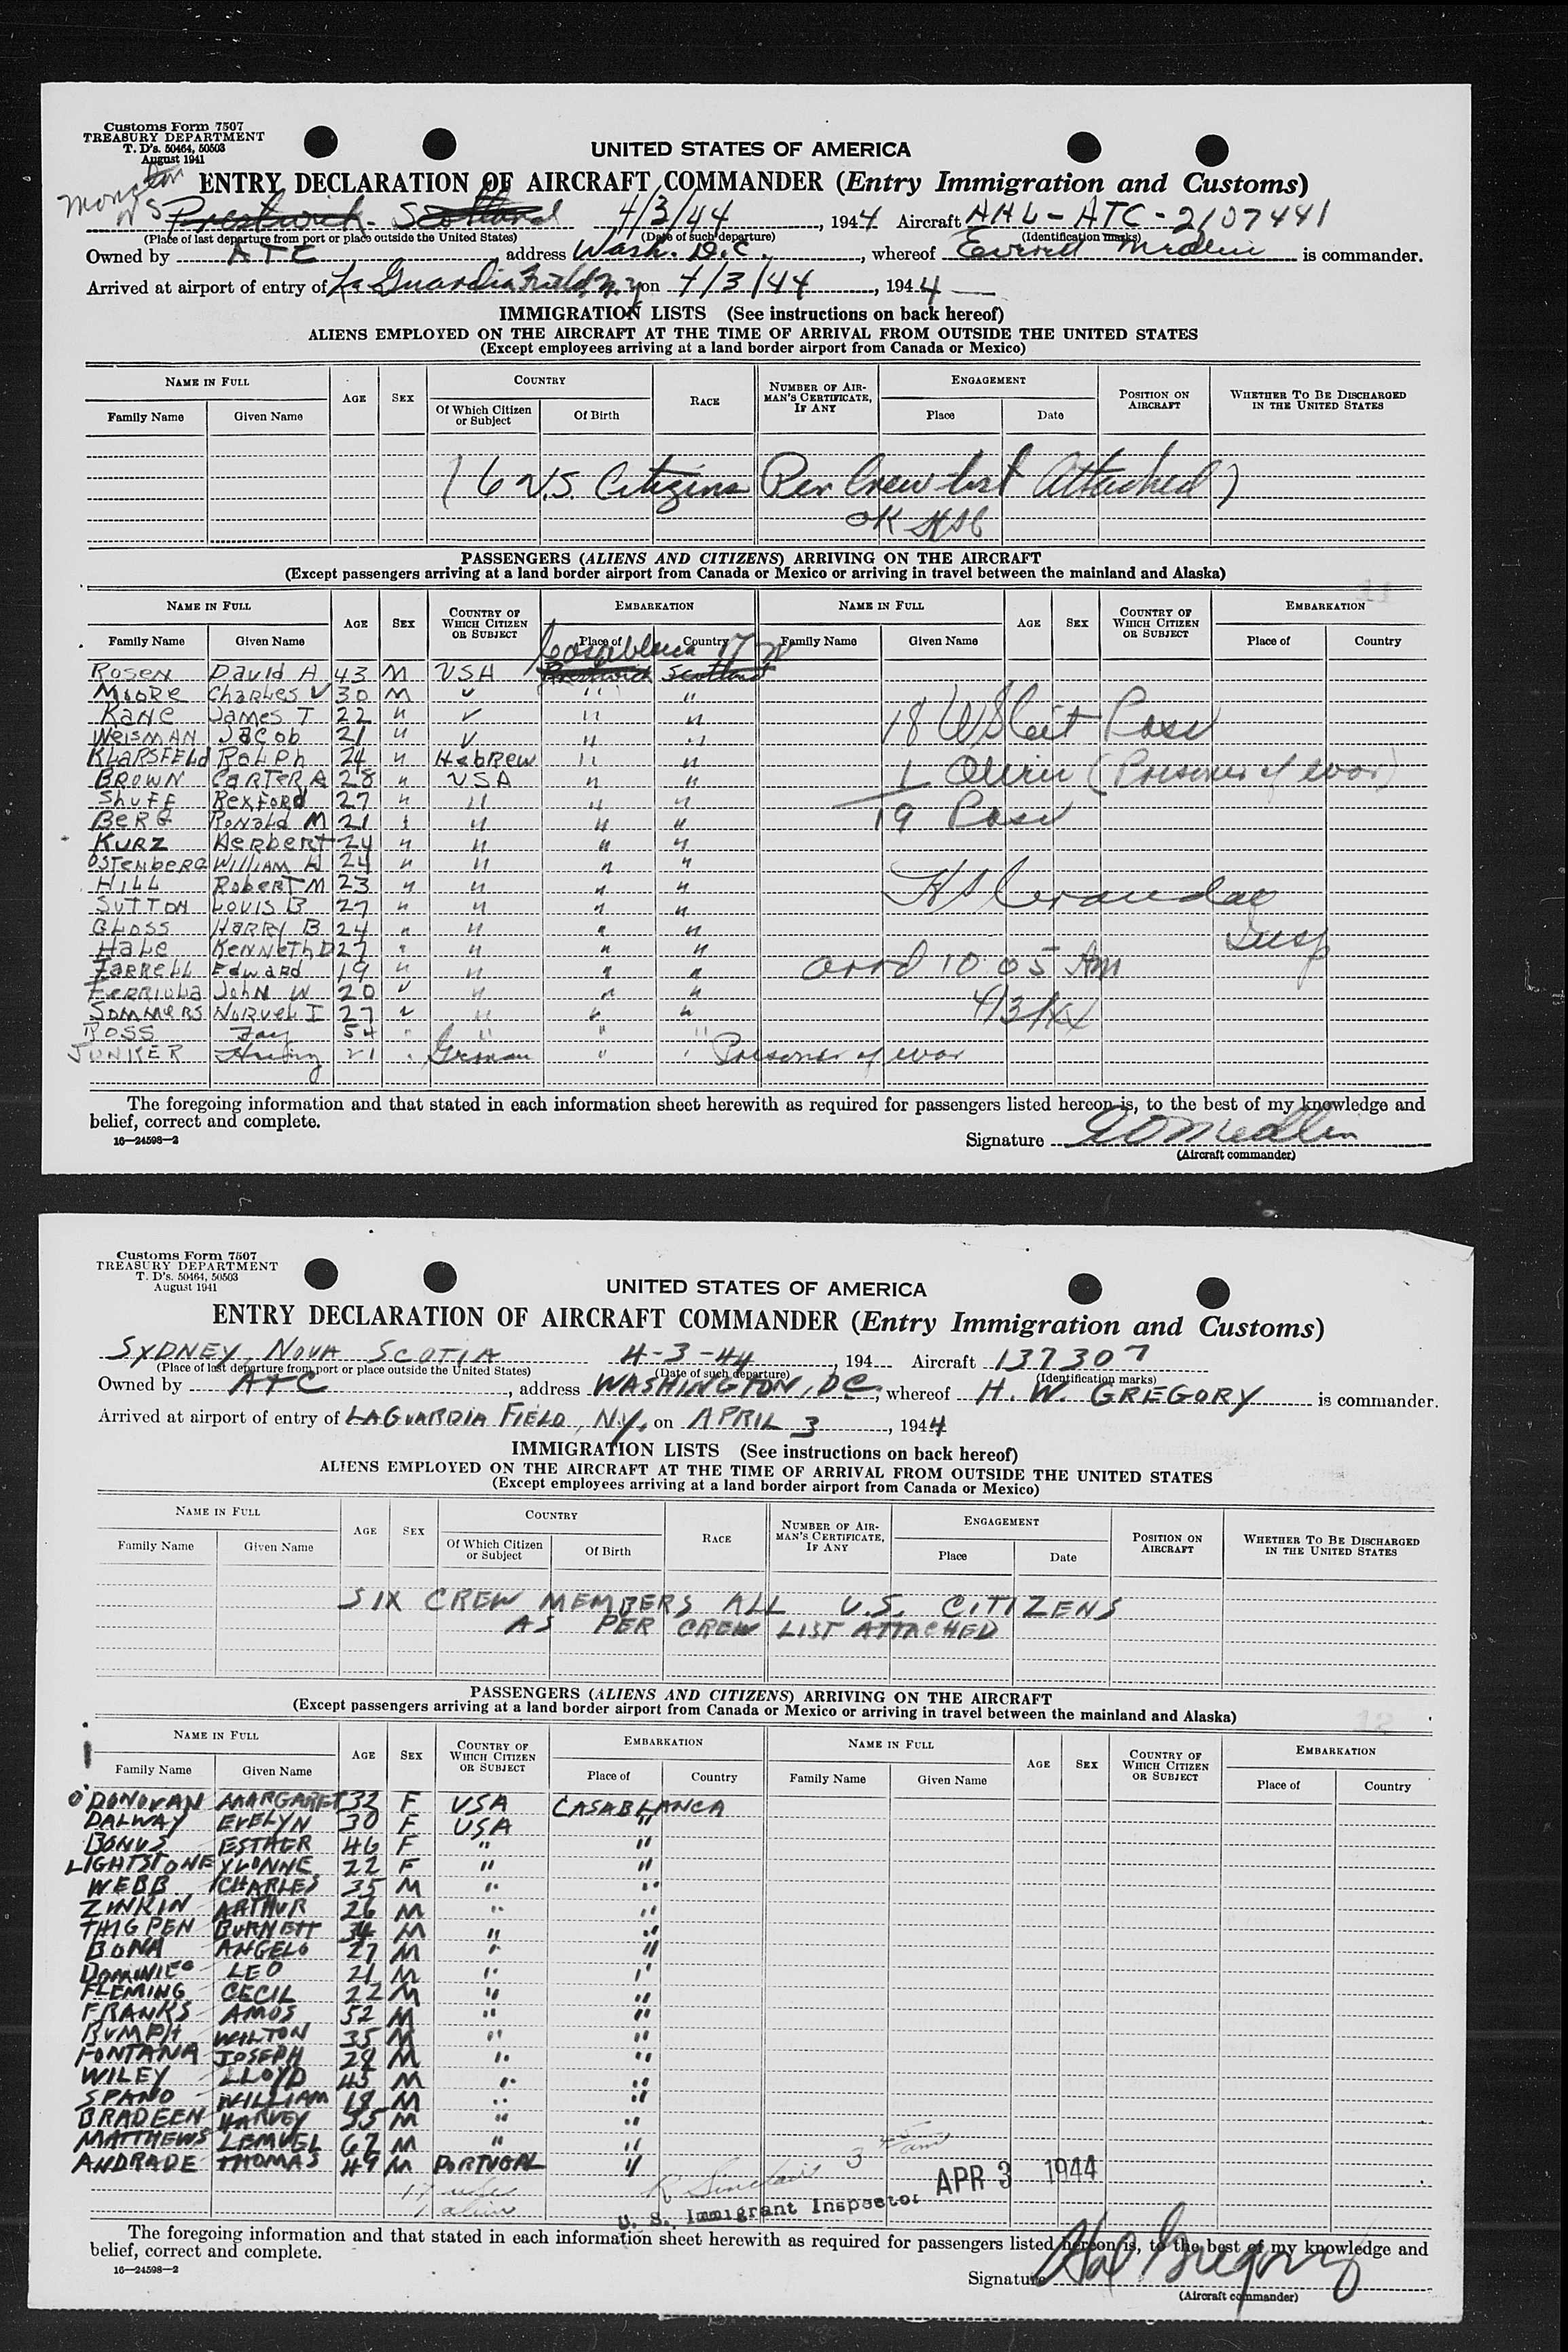 Customs Form 7507
TREASURY DEPARTMENT
T. D's. 50464, 50503
August 1941
UNITED STATES OF AMERICA
ENTRY DECLARATION OF AIRCRAFT COMMANDER (Entry Immigration and Customs)
Moncton
NS Prestwick Scotland 4/3/44, 1944 Aircraft AHL-ATC-2107441
(Place of last departure from port or place outside the United States) (Date of such departure) (Identification marks)
Owned by ATC address Wash. D.C., whereof Everett Medlin is commander.
Arrived at airport of entry of La Guardia Field, N.Y. on 4/3/44, 1944
IMMIGRATION LISTS (See instructions on back hereof)
ALIENS EMPLOYED ON THE AIRCRAFT AT THE TIME OF ARRIVAL FROM OUTSIDE THE UNITED STATES
(Except employees arriving at a land border airport from Canada or Mexico)
NAME IN FULL AGE SEX COUNTRY RACE NUMBER OF AIRMAN'S CERTIFICATE, IF ANY ENGAGEMENT POSITION ON AIRCRAFT WHETHER TO BE DISCHARGED IN THE UNITED STATES
Family Name Given Name Of Which Citizen or Subject Of Birth Place Date
(6 U.S. Citizens Per Crew list Attached)
OK HSC
PASSENGERS (ALIENS AND CITIZENS) ARRIVING ON THE AIRCRAFT
(Except passengers arriving at a land border airport from Canada or Mexico or arriving in travel between the mainland and Alaska)
11
NAME IN FULL AGE SEX COUNTRY OF WHICH CITIZEN OR SUBJECT EMBARKATION NAME IN FULL AGE SEX COUNTRY OF WHICH CITIZEN OR SUBJECT EMBARKATION
Family Name Given Name Place of Country Family Name Given Name Place of Country
Casablanca
ROSEN David H 43 M USA Prestwick Scotland
MOORE CHARLES V 30 M " " "
KANE JAMES T 22 " " " "
WEISMAN JACOB 21 " " " " 18 US Cit Pass
KLARSFELD RALPH 24 " HEBREW " "
BROWN CARTER A 28 " USA " " 1 Alien (Prisoner of war)
SHUFF REXFORD 27 " " " "
BERG RONALD M 21 " " " " 19 Pass
KURZ HERBERT 24 " " " "
OSTENBERG WILLIAM H 24 " " " "
HILL ROBERT M 23 " " " "
SUTTON LOUIS B 27 " " " " HS Crandall
GLOSS HARRY B 24 " " " " Insp
HALE KENNETH D 27 " " " "
FARRELL EDWARD 19 " " " " arrd 10 05 Am
FERRIOLA JOHN W 20 " " " "
SOMMERS NORVEL I 27 " " " " 4/3/44
ROSS Fay 54 " " " "
JUNKER 21 " German " " Prisoner of war
The foregoing information and that stated in each information sheet herewith as required for passengers listed hereon is, to the best of my knowledge and
belief, correct and complete.
16—24598—2
Signature EO Medlin
(Aircraft commander)
Customs Form 7507
TREASURY DEPARTMENT
T. D's. 50464, 50503
August 1941
UNITED STATES OF AMERICA
ENTRY DECLARATION OF AIRCRAFT COMMANDER (Entry Immigration and Customs)
SYDNEY, NOVA SCOTIA 4-3-44, 194 Aircraft 137307
(Place of last departure from port or place outside the United States) (Date of such departure) (Identification marks)
Owned by ATC, address WASHINGTON, DC, whereof H. W. GREGORY is commander.
Arrived at airport of entry of LAGUARDIA FIELD, N.Y. on APRIL 3, 1944
IMMIGRATION LISTS (See instructions on back hereof)
ALIENS EMPLOYED ON THE AIRCRAFT AT THE TIME OF ARRIVAL FROM OUTSIDE THE UNITED STATES
(Except employees arriving at a land border airport from Canada or Mexico)
NAME IN FULL AGE SEX COUNTRY RACE NUMBER OF AIRMAN'S CERTIFICATE, IF ANY ENGAGEMENT POSITION ON AIRCRAFT WHETHER TO BE DISCHARGED IN THE UNITED STATES
Family Name Given Name Of Which Citizen or Subject Of Birth Place Date
SIX CREW MEMBERS ALL U.S. CITIZENS
AS PER CREW LIST ATTACHED
PASSENGERS (ALIENS AND CITIZENS) ARRIVING ON THE AIRCRAFT
(Except passengers arriving at a land border airport from Canada or Mexico or arriving in travel between the mainland and Alaska)
12
NAME IN FULL AGE SEX COUNTRY OF WHICH CITIZEN OR SUBJECT EMBARKATION NAME IN FULL AGE SEX COUNTRY OF WHICH CITIZEN OR SUBJECT EMBARKATION
Family Name Given Name Place of Country Family Name Given Name Place of Country
O'DONOVAN MARGARET 32 F USA CASABLANCA
DALWAY EVELYN 30 F USA "
BONUS ESTHER 46 F " "
LIGHTSTONE YVONNE 22 F " "
WEBB CHARLES 35 M " "
ZINKIN ARTHUR 26 M " "
THIGPEN BURNETT 34 M " "
BONA ANGELO 27 M " "
DOMINICO LEO 21 M " "
FLEMING CECIL 22 M " "
FRANKS AMOS 52 M " "
RUMPH WILTON 35 M " "
FONTANA JOSEPH 28 M " "
WILEY LLOYD 45 M " "
SPANO WILLIAM 18 M " "
BRADEEN HARVEY 35 M " "
MATTHEWS LEMUEL 67 M " "
ANDRADE THOMAS 49 M PORTUGAL "
17 uSc R Sinclair 3 45 am APR 3 1944
1 alien U. S. Immigrant Inspector
The foregoing information and that stated in each information sheet herewith as required for passengers listed hereon is, to the best of my knowledge and
belief, correct and complete.
16—24598—2
Signature Hal Gregory
(Aircraft commander)